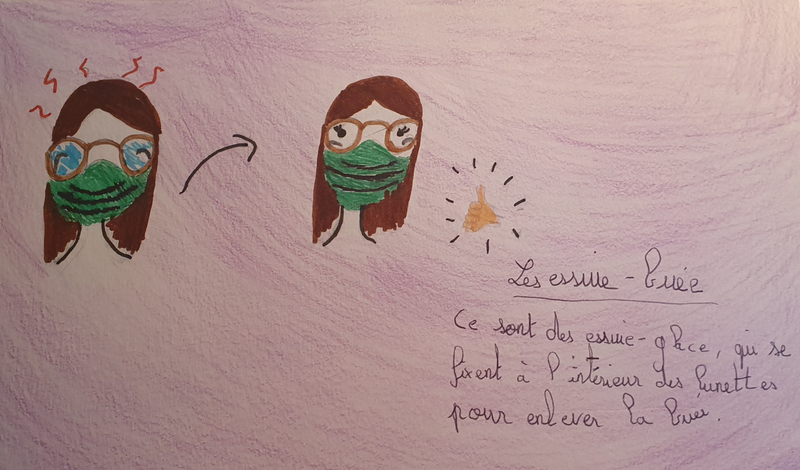 Les essuie-buée
Ce sont des essuie-glace, qui se
fixent à l'intérieur des lunettes
pour enlever la buée.